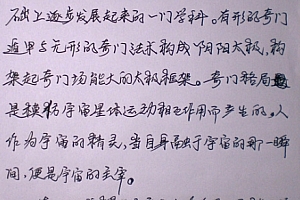 础上逐步发展起来的一门学科。有形的奇门
遁甲与无形的奇门法术构成阴阳太极，构
架起奇门场能大的太极框架。奇门格局
是模拟宇宙星体运动相互作用而产生的。人
作为宇宙的精灵，当自身融于宇宙的那一瞬
间，便是宇宙的主宰。